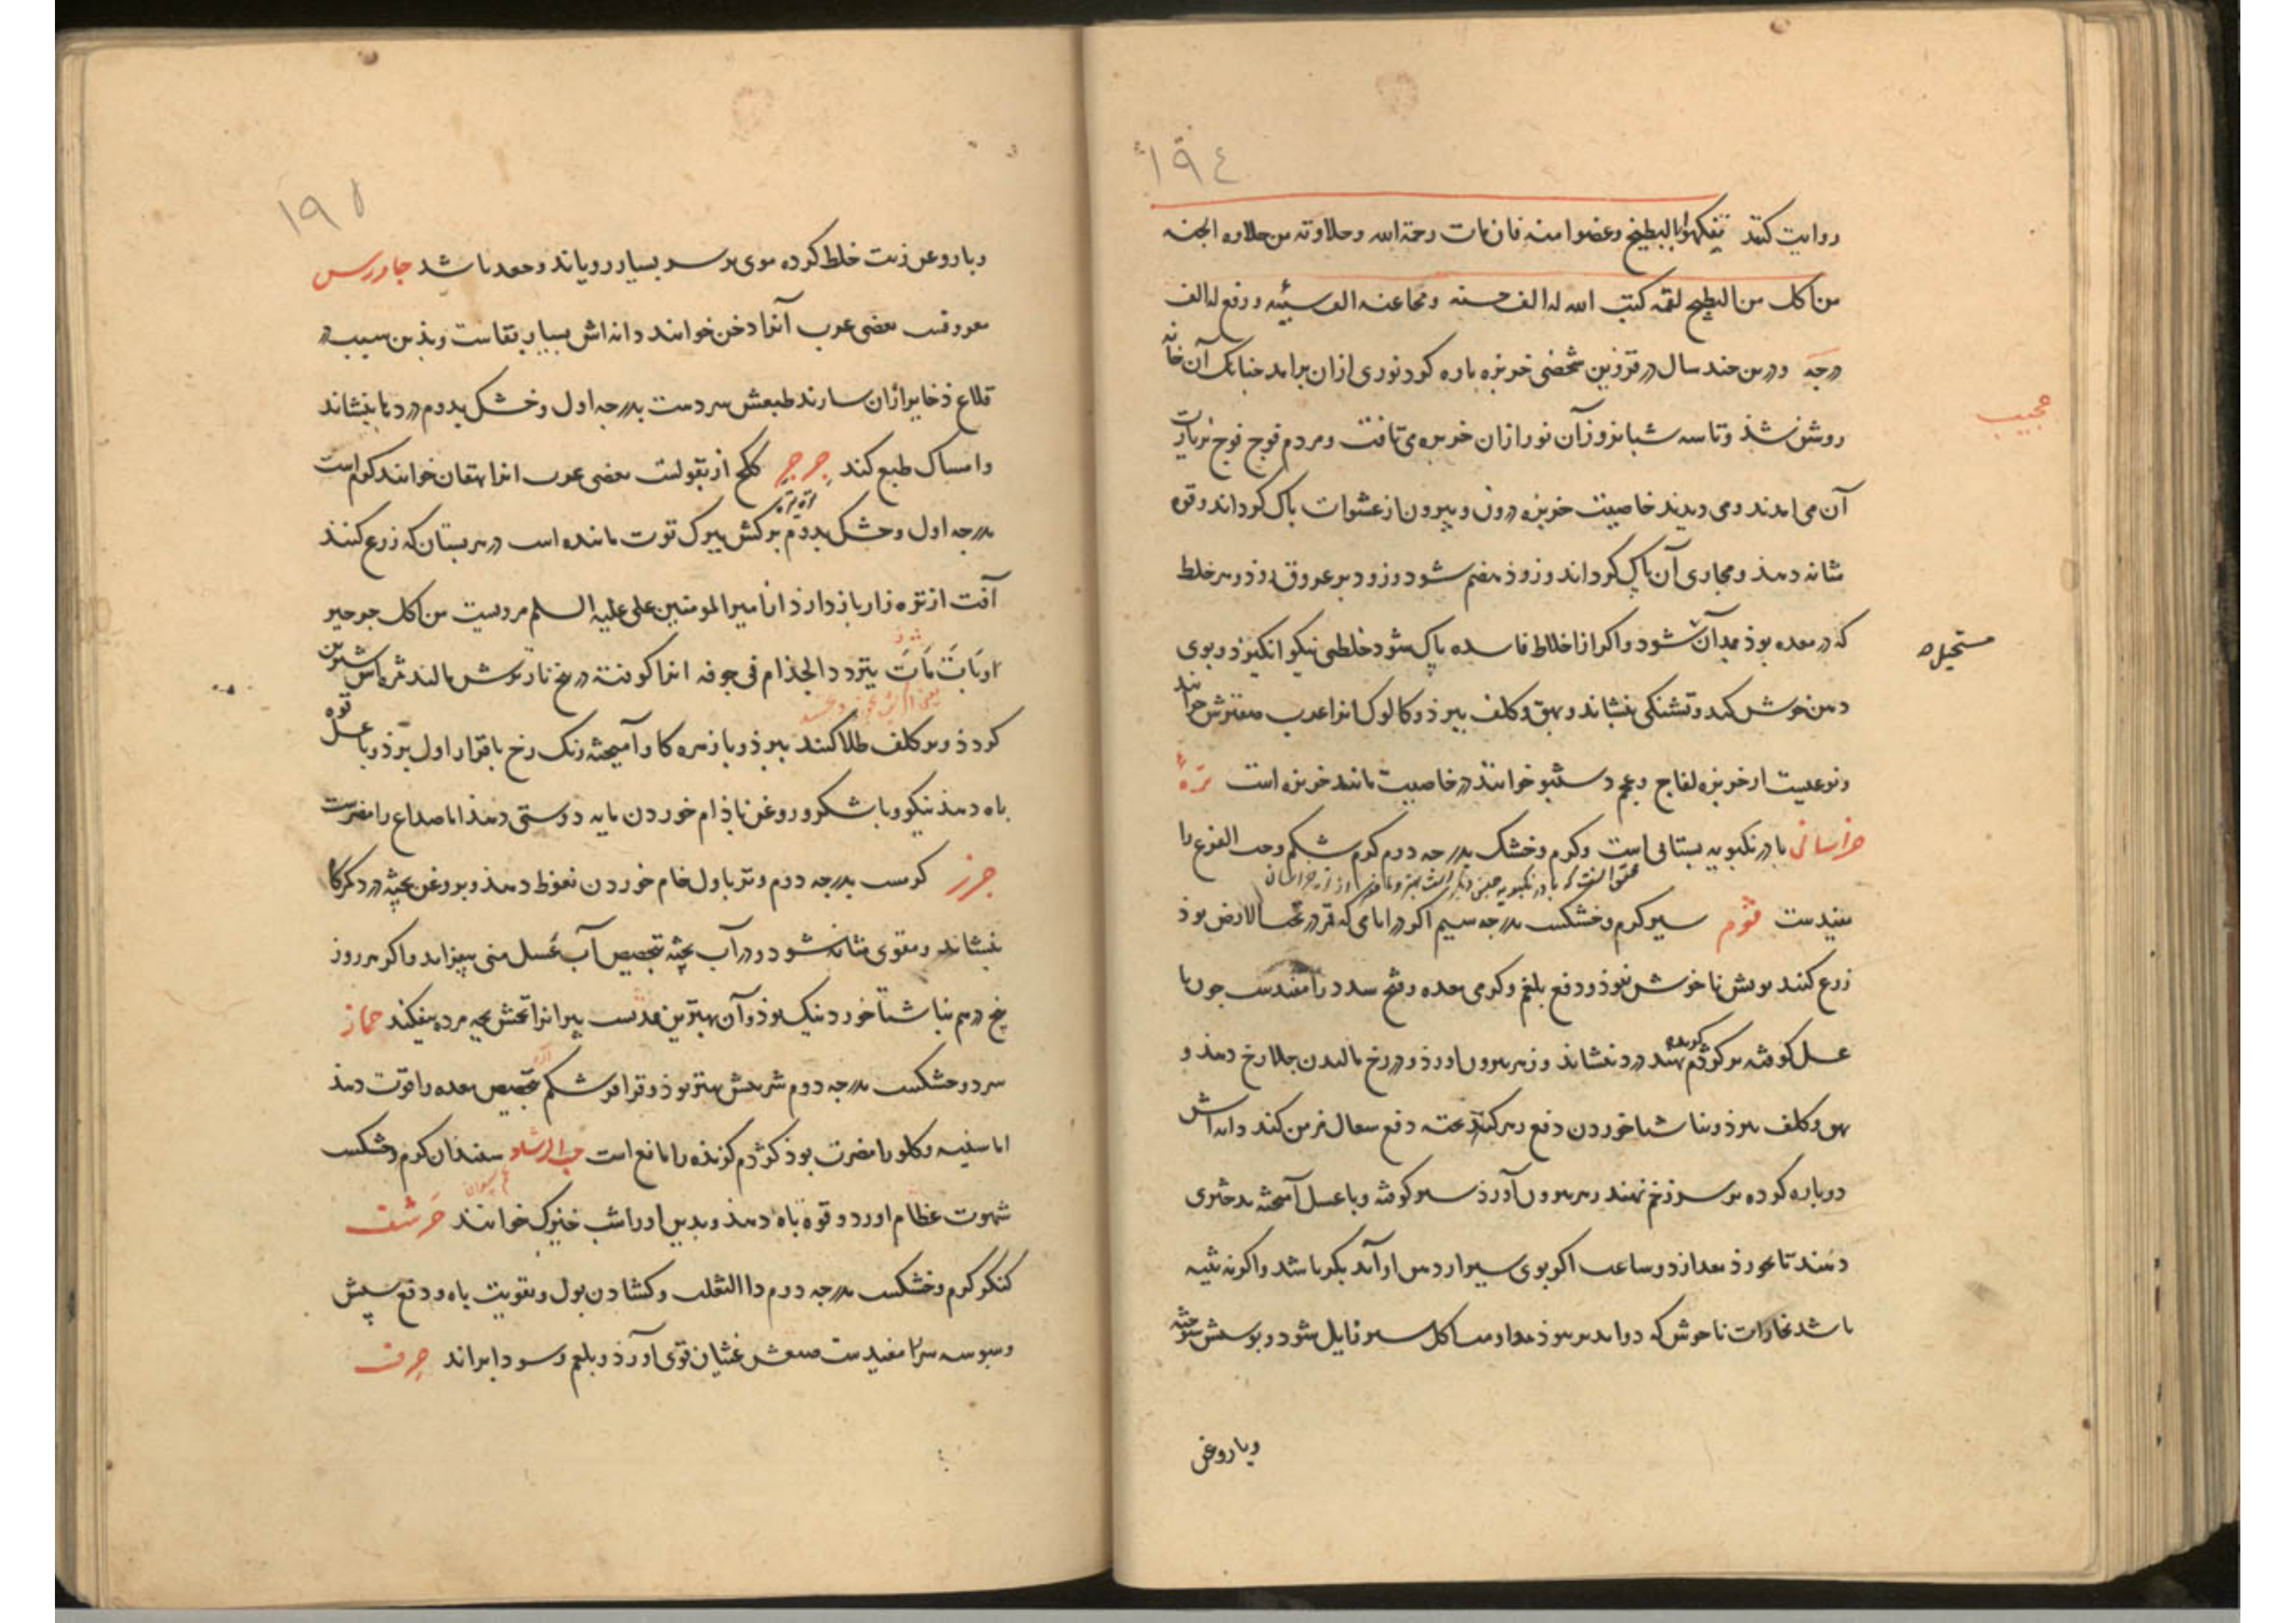 ۱۹٤
روایت کنند تفکهوا بالبطیخ وعضوا منه فان ماءه رحمة الله وحلاوته من حلاوه الجنه
من اکل من البطیخ لقمه کتب الله له الف حسنه ومحا عنه الف سیئه ورفع له الف
درجه ودرین چند سال در قزوین شخصی خربزه پاره کرد نوری ازان برامد چنانک آن خانه
عجیب
روشن شذ وتا سه شبانروز آن نور ازان خربزه می تافت ومردم فوج فوج بزیارت
آن می امدند ومی دیدند خاصیت خربزه درون وبیرون از عشوات پاک گرداند وقوه
مثانه دهذ ومجاری آن پاک گرداند وزوذ هضم شود وزود بر عروق روذ وهر خلط
که در معده بوذ بدان شود واگر از اخلاط فاسده پاک شود خلطی نیکو انگیزذ وبوی
مستحیل
دهن خوش کند وتشنگی بنشاند وبهق وکلف ببرذ وکالوک انرا عرب خوانند
ونوعیست از خربزه لفاح وعجم دستنبو خوانند در خاصیت مانند خربزه است تره
خراسانی بادرنکبویه بستانی است وگرم وخشک بدرجه دوم کرم شکم وحب القرع را
مفیدست ثوم سیر گرم وخشکست بدرجه سیم اگر در ایامی که قمر در تحت الارض بوذ
زرع کنند بویش ناخوش نبوذ ودفع بلغم وگرمی معده وفتح سدد را مفیدست چون با
عسل کوفته بر کژدم گزیده نهند درد بنشاند وزهر بیرون اورذ ودر رخ مالیدن جلا رخ دهذ و
بهق وکلف ببرذ وبناشتا خوردن دفع زهر کند پخته دفع سعال مزمن کند دانه اش
دوپاره کرده بر سر زخم نهند زهر بیرون آورذ سیر کوفته وبا عسل آمیخته بدختری
دهند تا بخورذ بعد از دو ساعت اگر بوی سیر از دهن او آید بکر باشد واگر نه ثیبه
باشد بخارات ناخوش که دواید ببرذ سیر زایل شود وپوستش سوخته
وبا روغن
۱۹۵
وبا روغن زیت خلط کرده موی بر سر بسیار رویاند وجعد باشد جاورس
معروفست بعضی عرب آنرا دخن خوانند دانه اش بسیار بقاست وبذین سبب در
قلاع ذخایر ازان سازند طبعش سردست بدرجه اول وخشک بدوم درد ها بنشاند
وامساک طبع کند جرجیر کلج از بقولست بعضی عرب انرا ایهقان خوانند گرم است
بدرجه اول وخشک بدوم برگش ببرگ توت ماننده است در هر بستان که زرع کنند
آفت از تره زار باز دارذ از امیر المومنین علی علیه السلم مرویست من اکل جرجیر
وبات بات یتردد الجذام فی جوفه انرا کوفته در بیخ نار ترش مالند ثمره اش شیرین
گردذ وبر کلف طلا کنند ببرذ وبا زهره گاو آمیخته رنگ رخ با قرار اول برذ وبا عسل قوه
باه دهذ نیکو وبا شکر وروغن باذام خوردن مایه دوستی دهذ اما صداع را مضرست
جزر گرمست بدرجه دوم وتر باول خام خوردن نعوظ دهذ وبروغن پخته درد گرده
بنشاند ومقوی مثانه شود ودر آب پخته بتخصیص آب عسل منی بیفزاید واگر هر روز
پنج درم بناشتا خورد نیک بوذ وآن بهترین مدرست پیر انرا تخمش بچه مرده بیفکند حماز
سرد وخشکست بدرجه دوم شربتش بهتر بوذ وتراقر شکم بتخصیص معده را قوت دهذ
اما سینه وگلو را مضرت بوذ کژدم گزنده را مانع است حب الرشاد سفندان گرم وخشکست
شهوت عظام اورد وقوه باه دهذ وبدین او را شب خیزک خوانند حرشف
کنگر گرم وخشکست بدرجه دوم داء الثعلب وگشادن بول وتقویت باه ودفع سپش
وسبوسه سر را مفیدست صمغش غثیان قوی آورذ وبلغم وسودا براند حرف